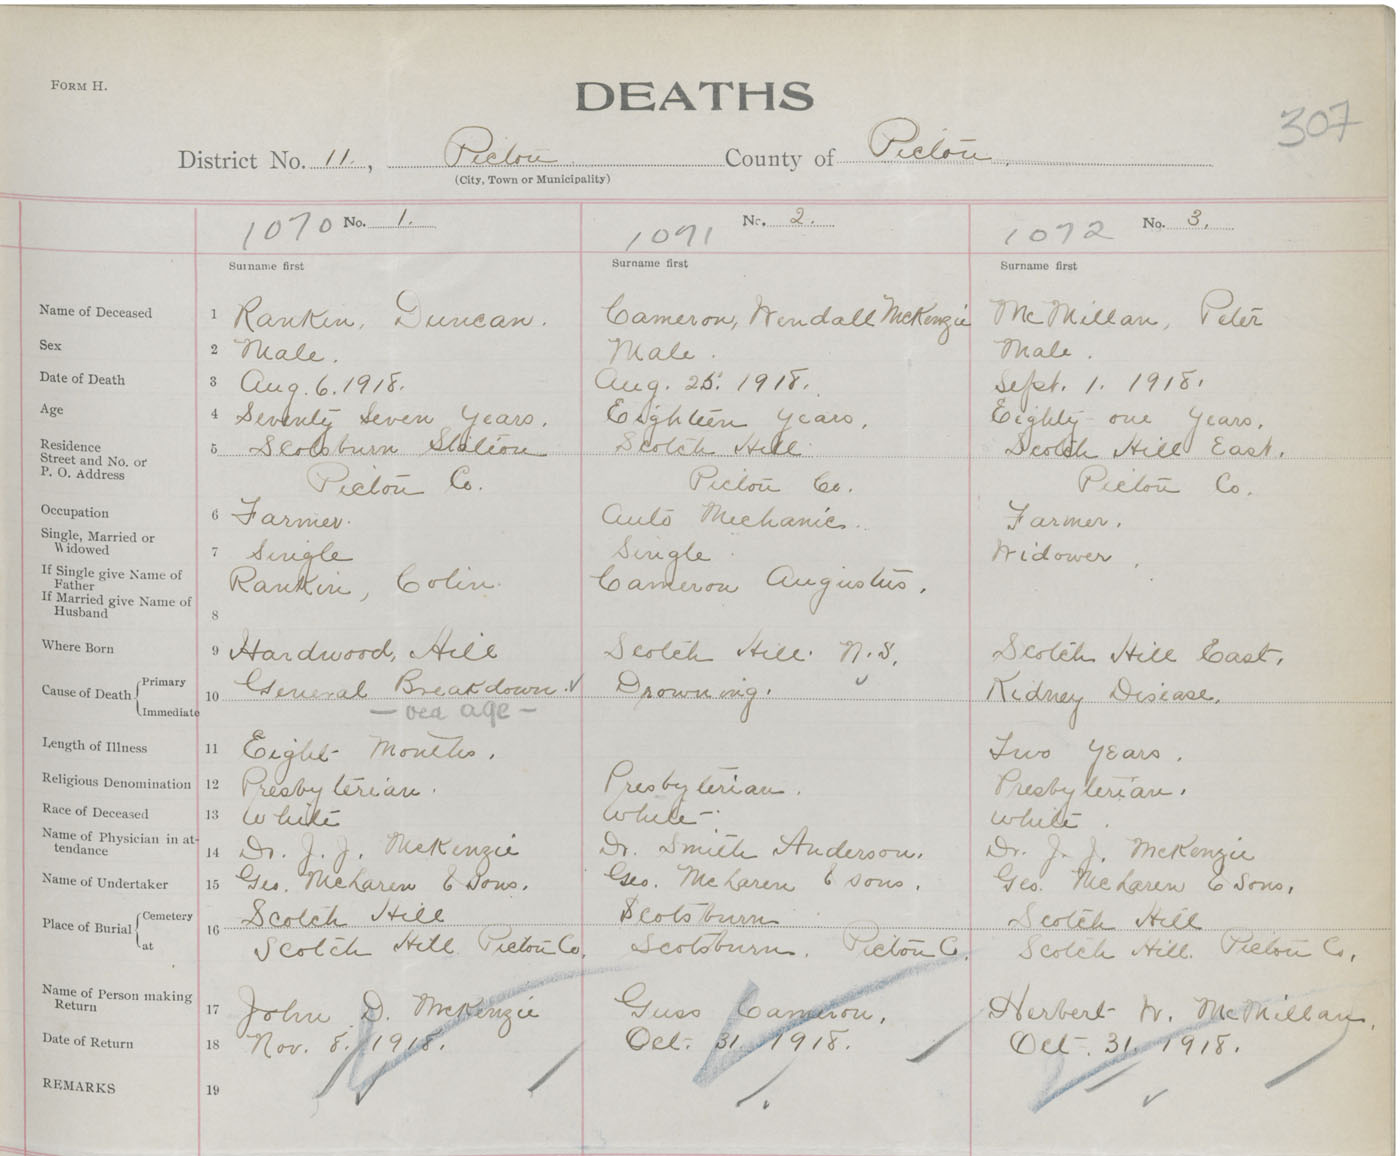 FORM H.
DEATHS
307
District No. 11., Pictou County of Pictou.
(City, Town or Municipality)
1070 No. 1. 1071 No. 2. 1072 No. 3.
Surname first Surname first Surname first
Name of Deceased 1 Rankin, Duncan. Cameron, Wendall McKenzie McMillan, Peter
Sex 2 Male. Male. Male.
Date of Death 3 Aug. 6. 1918. Aug. 25. 1918. Sept. 1. 1918.
Age 4 Seventy Seven Years. Eighteen Years. Eighty-one Years.
Residence 5 Scotsburn Station Scotch Hill Scotch Hill East.
Street and No. or
P. O. Address Pictou Co. Pictou Co. Pictou Co.
Occupation 6 Farmer. Auto Mechanic. Farmer.
Single, Married or
Widowed 7 Single Single Widower.
If Single give Name of
Father Rankin, Colin. Cameron Augustus.
If Married give Name of
Husband 8
Where Born 9 Hardwood, Hill Scotch Hill. N.S. Scotch Hill East.
Cause of Death Primary 10 General Breakdown. Drowning. Kidney Disease.
Immediate — age —
Length of Illness 11 Eight Months. Two Years.
Religious Denomination 12 Presbyterian. Presbyterian. Presbyterian.
Race of Deceased 13 White White White.
Name of Physician in at-
tendance 14 Dr. J. J. McKenzie Dr. Smith Anderson. Dr. J. J. McKenzie
Name of Undertaker 15 Geo. McLaren & Sons. Geo. McLaren & Sons. Geo. McLaren & Sons.
Place of Burial Cemetery 16 Scotch Hill Scotsburn Scotch Hill
at Scotch Hill Pictou Co. Scotsburn. Pictou Co. Scotch Hill. Pictou Co.
Name of Person making
Return 17 John D. McKenzie Guss Cameron. Herbert W. McMillan.
Date of Return 18 Nov. 8. 1918. Oct. 31. 1918. Oct. 31. 1918.
REMARKS 19